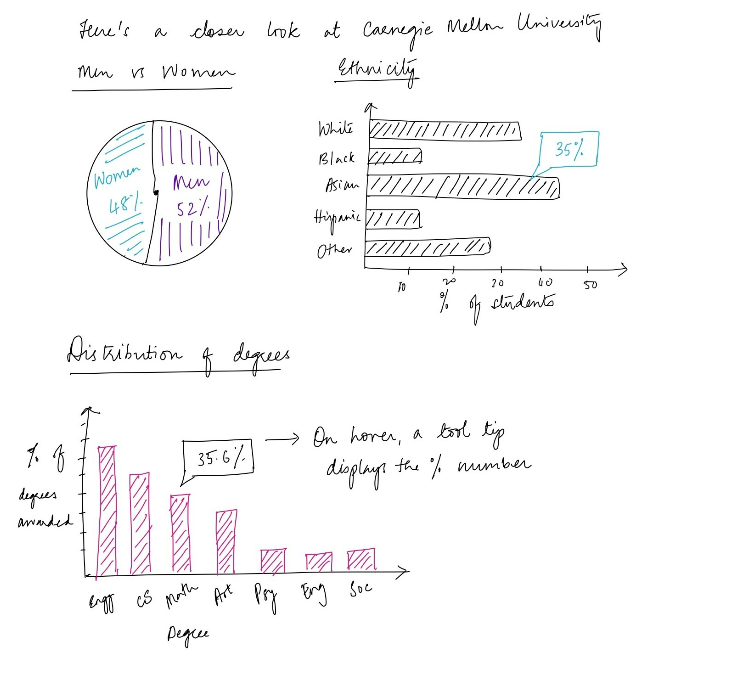 Here's a closer look at Carnegie Mellon University
Men vs Women
Ethnicity
Women
48%
Men
52%
White
Black
Asian
Hispanic
Other
35%
10 20 30 40 50
% of students
Distribution of degrees
% of
degrees
awarded
35.6%
On hover, a tool tip
displays the % number
Engg CS Math Art Psy Eng Soc
Degree